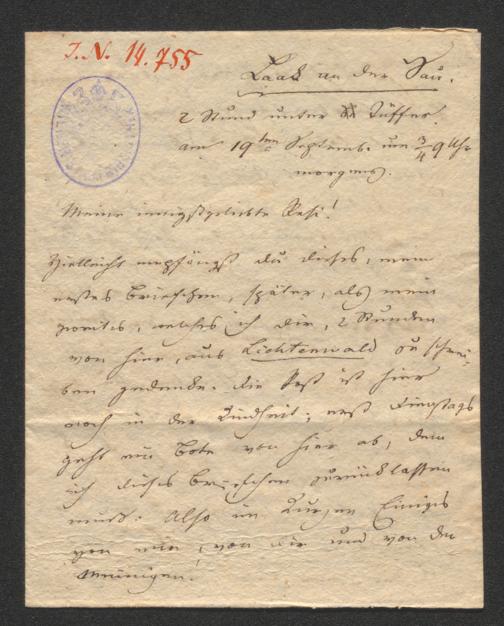 I.N. 14.755
Laak an der Sau.
2 Stund unter Tüffer
am 19ten Septemb. um 3/4 9 Uhr
morgens.
Meine innigstgeliebte Resi!
Vielleicht empfängst du dieses, mein
erstes Briefchen, später, als mein
zweites, welches ich dir, 2 Stunden
von hier, aus Lichtenwald zu schrei-
ben gedenke. Die Post ist hier
noch in der Kindheit; erst Dienstags
geht ein Bote von hier ab, dem
ich dieses Briefchen zurücklassen
muß. Also in Kurzen Einiges
von mir, von dir und von den
Meinigen!